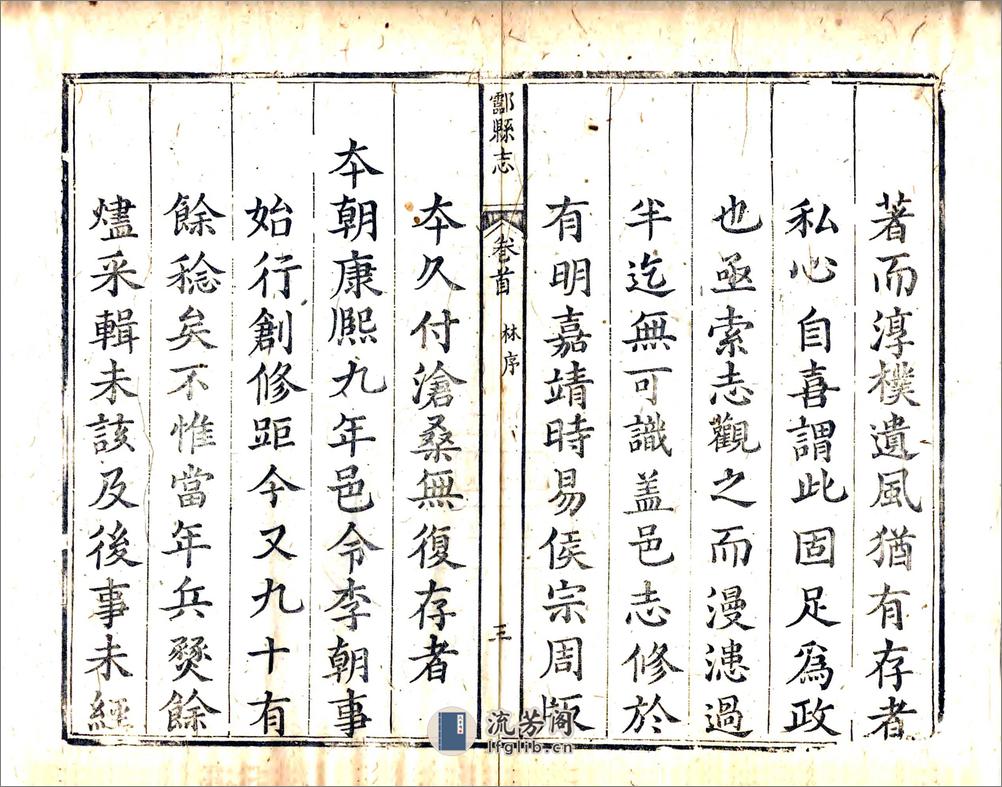 著而淳樸遺風猶有存者
私心自喜謂此固足為政
也亟索志觀之而漫漶過
半迄無可識盖邑志修於
有明嘉靖時易侯宗周版
酃縣志 卷首 林序 三
本久付滄桑無復存者
本朝康熈九年邑令李朝事
始行創修距今又九十有
餘稔矣不惟當年兵燹餘
燼采輯未該及後事未經
流芳阁
lfglib.cn